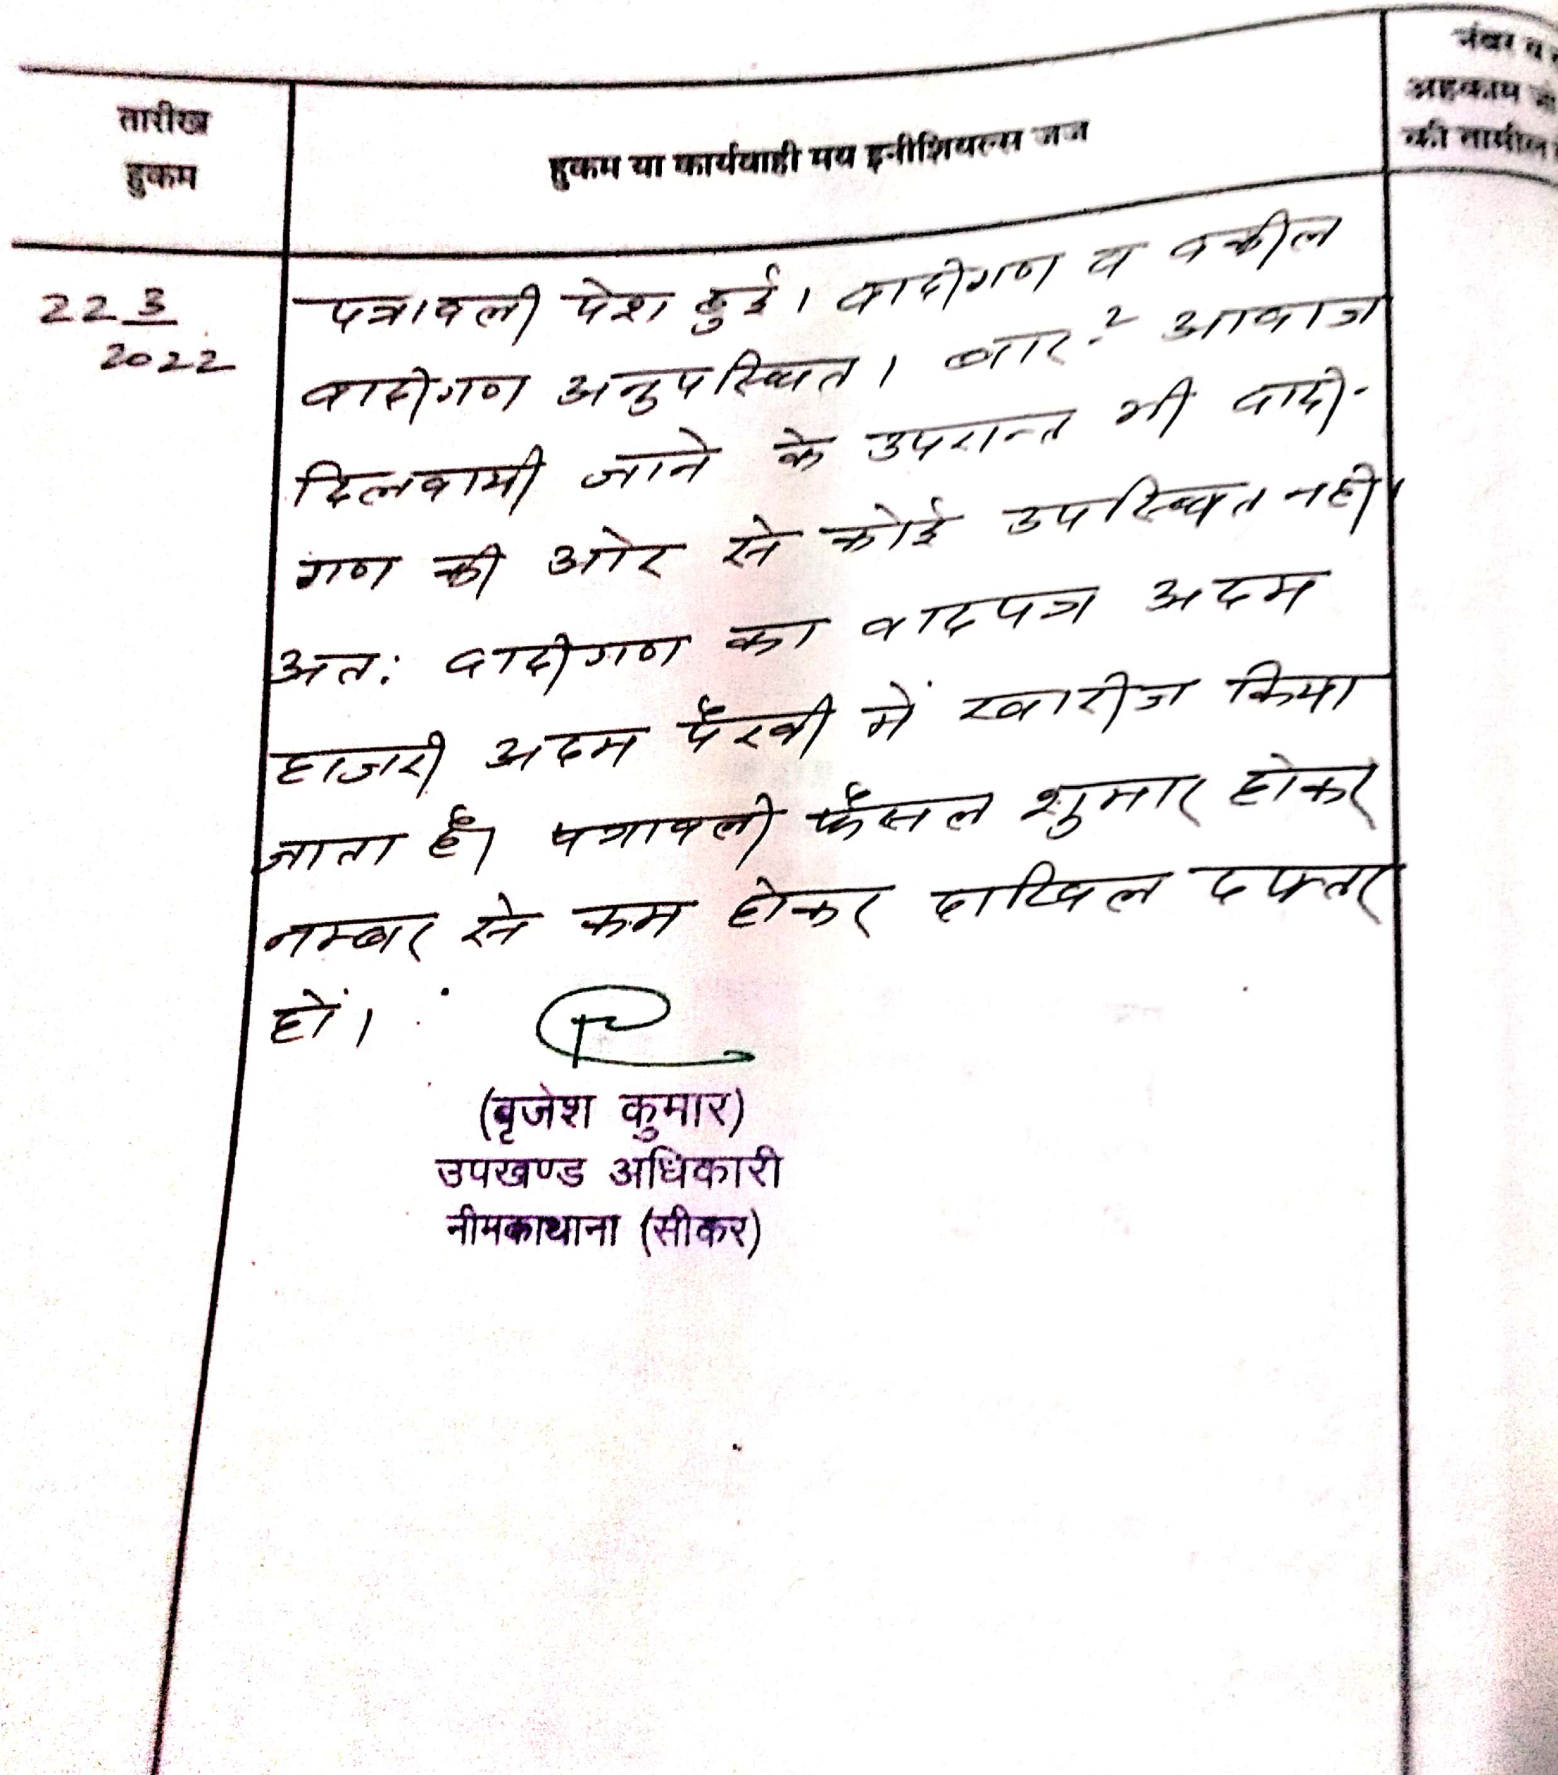 तारीख
हुकम
हुकम या कार्यवाही मय इनीशियल्स जज
नंबर व
अहकाम
की तामील
22 3
2022
पत्रावली पेश हुई। वादीगण व वकील
वादीगण अनुपस्थित। बार-2 आवाज
दिलवायी जाने के उपरान्त भी वादी-
गण की ओर से कोई उपस्थित नही।
अत: वादीगण का वादपत्र अदम
हाजरी अदम पैरवी में खारीज किया
जाता है। पत्रावली फैसल शुमार होकर
नम्बर से कम होकर दाखिल दफ्तर
हों।
(बृजेश कुमार)
उपखण्ड अधिकारी
नीमकाथाना (सीकर)